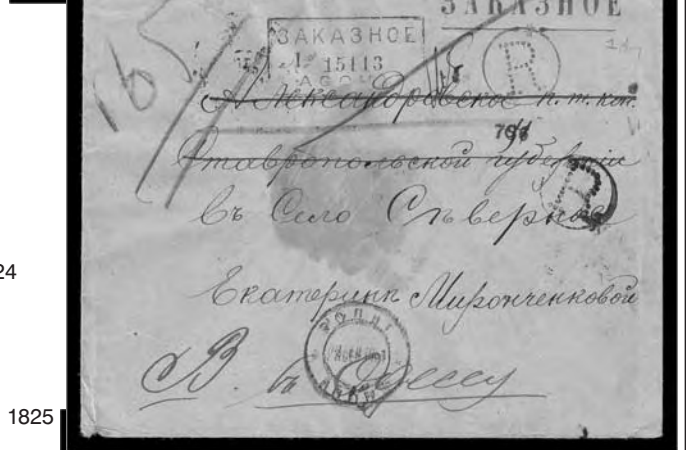 ЗАКАЗНОЕ
ЗАКАЗНОЕ
15113
АѲОН
R
165
Александровское п. т. кон.
796
Ставропольской губернiи
R
въ Село Сѣверное
24
Екатеринѣ Миронченковой
РОПИТ
АѲОН
В. въ Одессу
1825